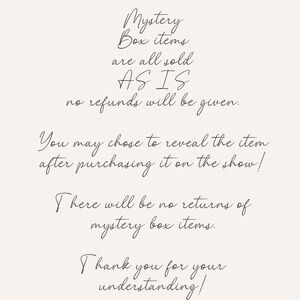 Mystery
Box items
are all sold
AS IS
no refunds will be given.
You may chose to reveal the item
after purchasing it on the show!
There will be no returns of
mystery box items.
Thank you for your
understanding!